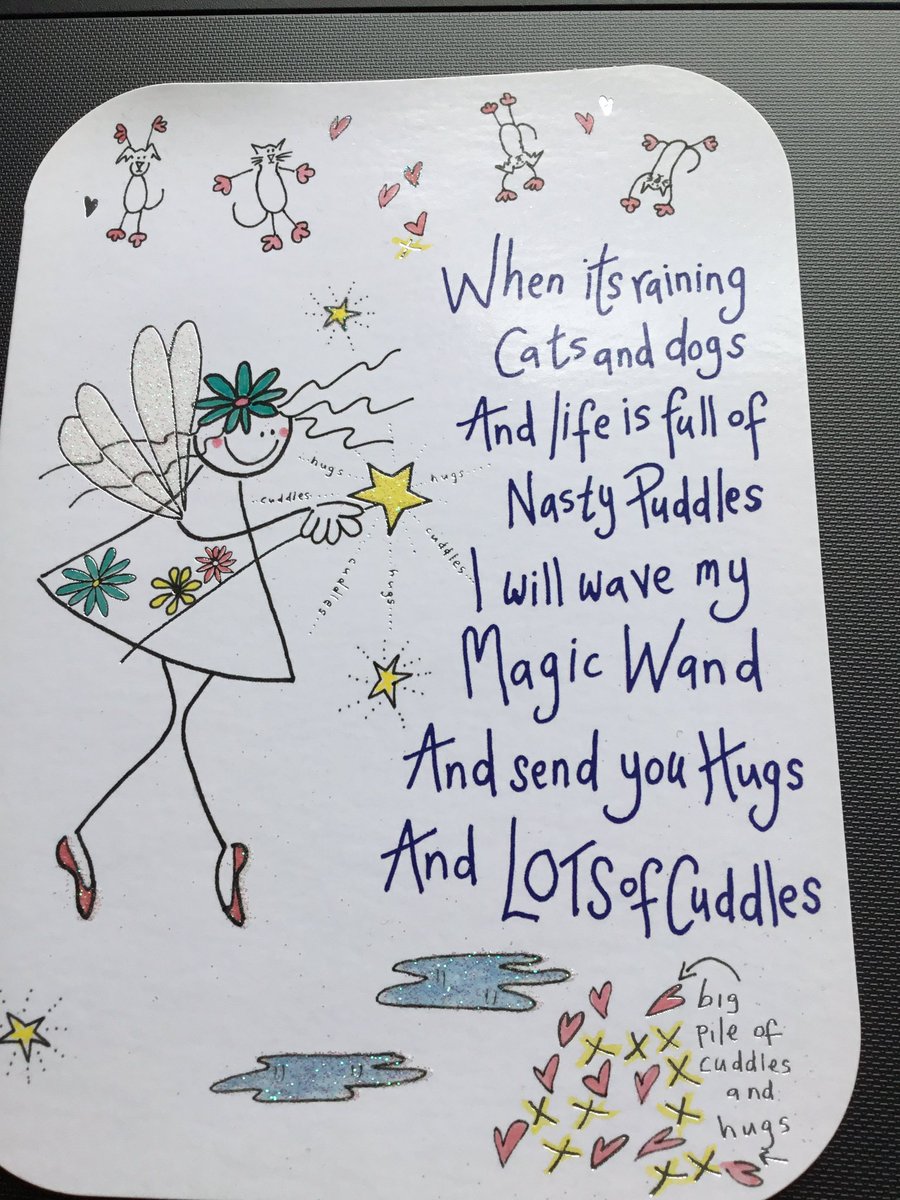 When its raining
Cats and dogs
And life is full of
Nasty Puddles
I will wave my
Magic Wand
And send you Hugs
And LOTS of Cuddles
hugs
hugs
cuddles
cuddles
cuddles
hugs
big
pile of
cuddles
and
hugs